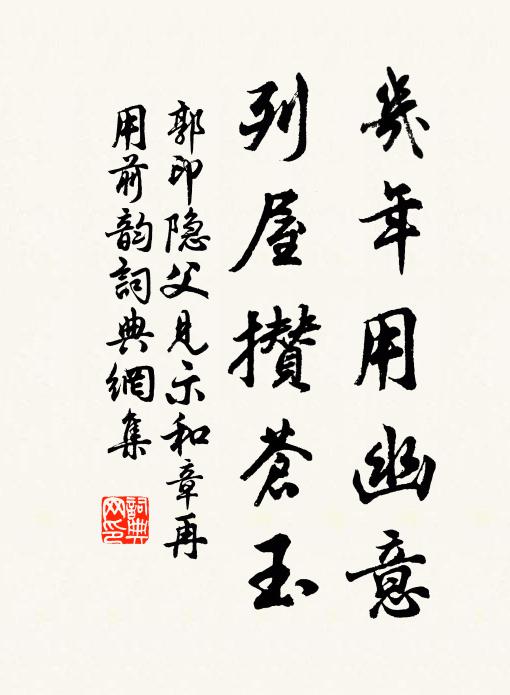 幾年用幽意
列屋攢蒼玉
郭印隐父見示和章再
用前韵詞典網集
詞典网印